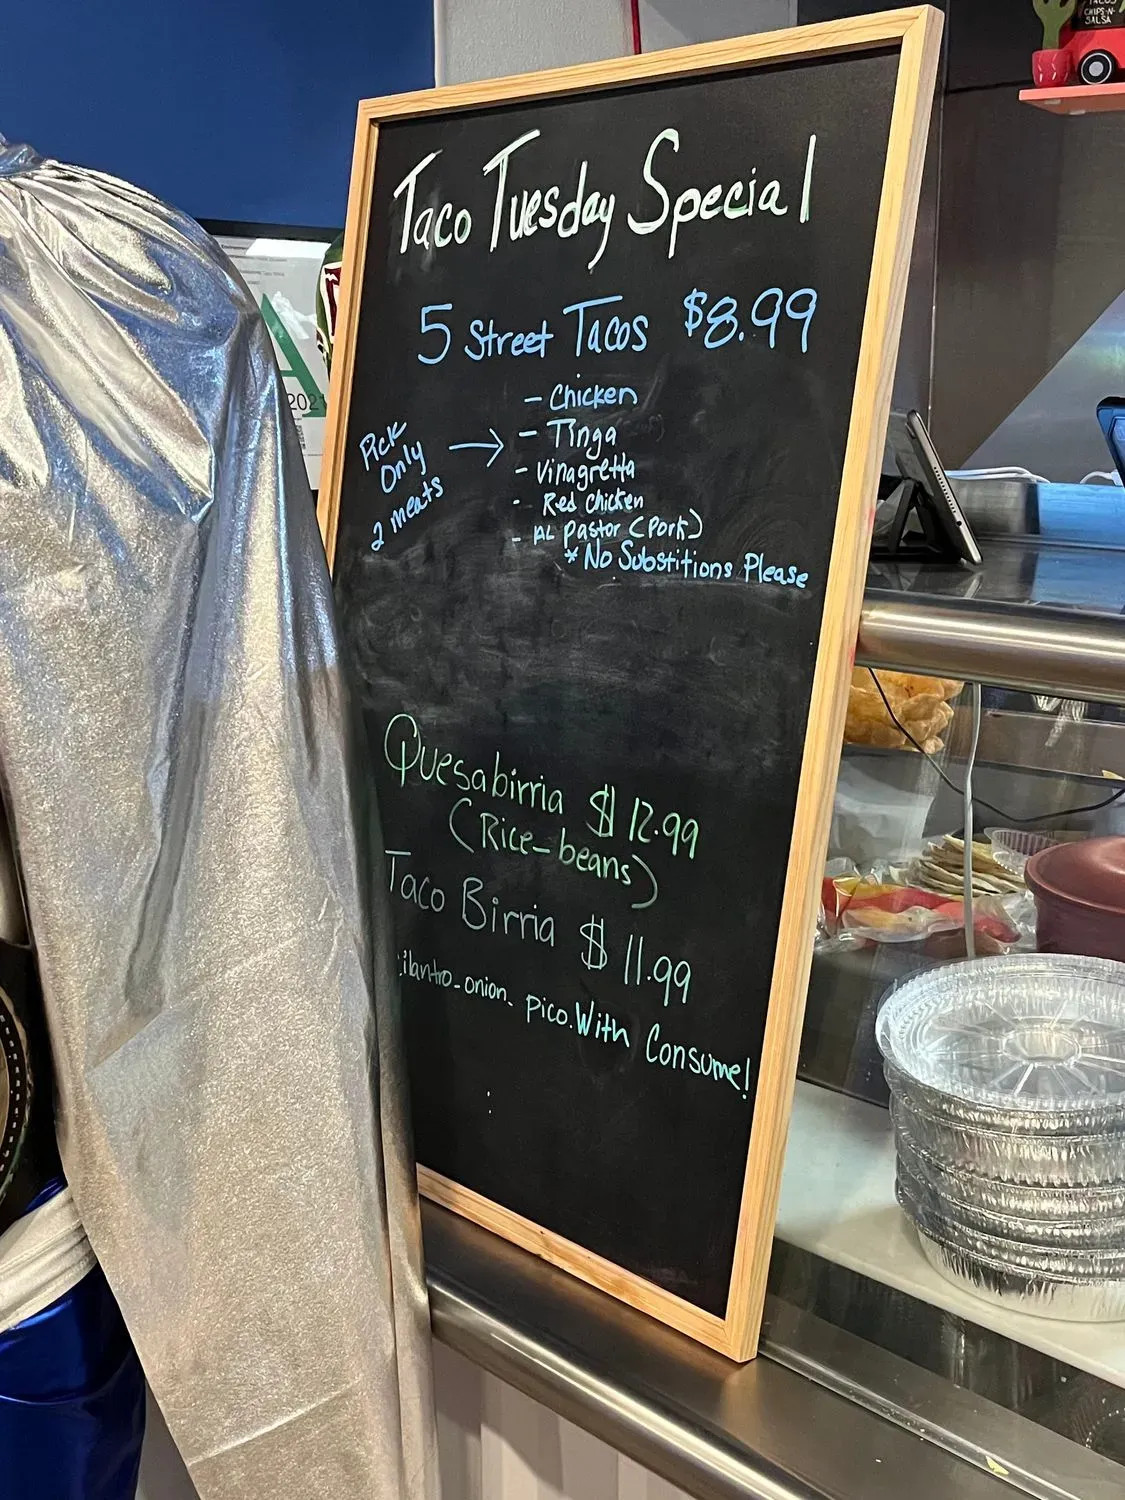 TACOS
CHIPS-N-
SALSA
Taco Tuesday Special
5 Street Tacos $8.99
- Chicken
- Tinga
- Vinagretta
- Red chicken
- AL pastor (Pork)
* No Substitions Please
Pick
Only
2 meats
Quesabirria $12.99
(Rice-beans)
Taco Birria $11.99
ilantro-onion- pico. With Consume!
A
2021